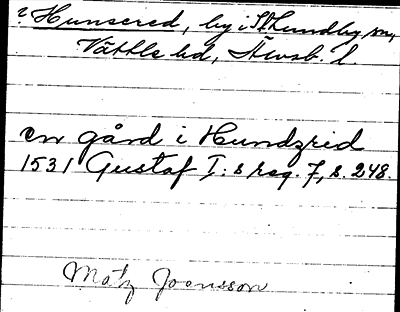 ? Hunsered, by i St Lundby sn,
Vättle hd, Älvsb. l.
en gård i Hundzrid
1531 Gustaf I:s reg. 7, s. 248.
Matz Joensson